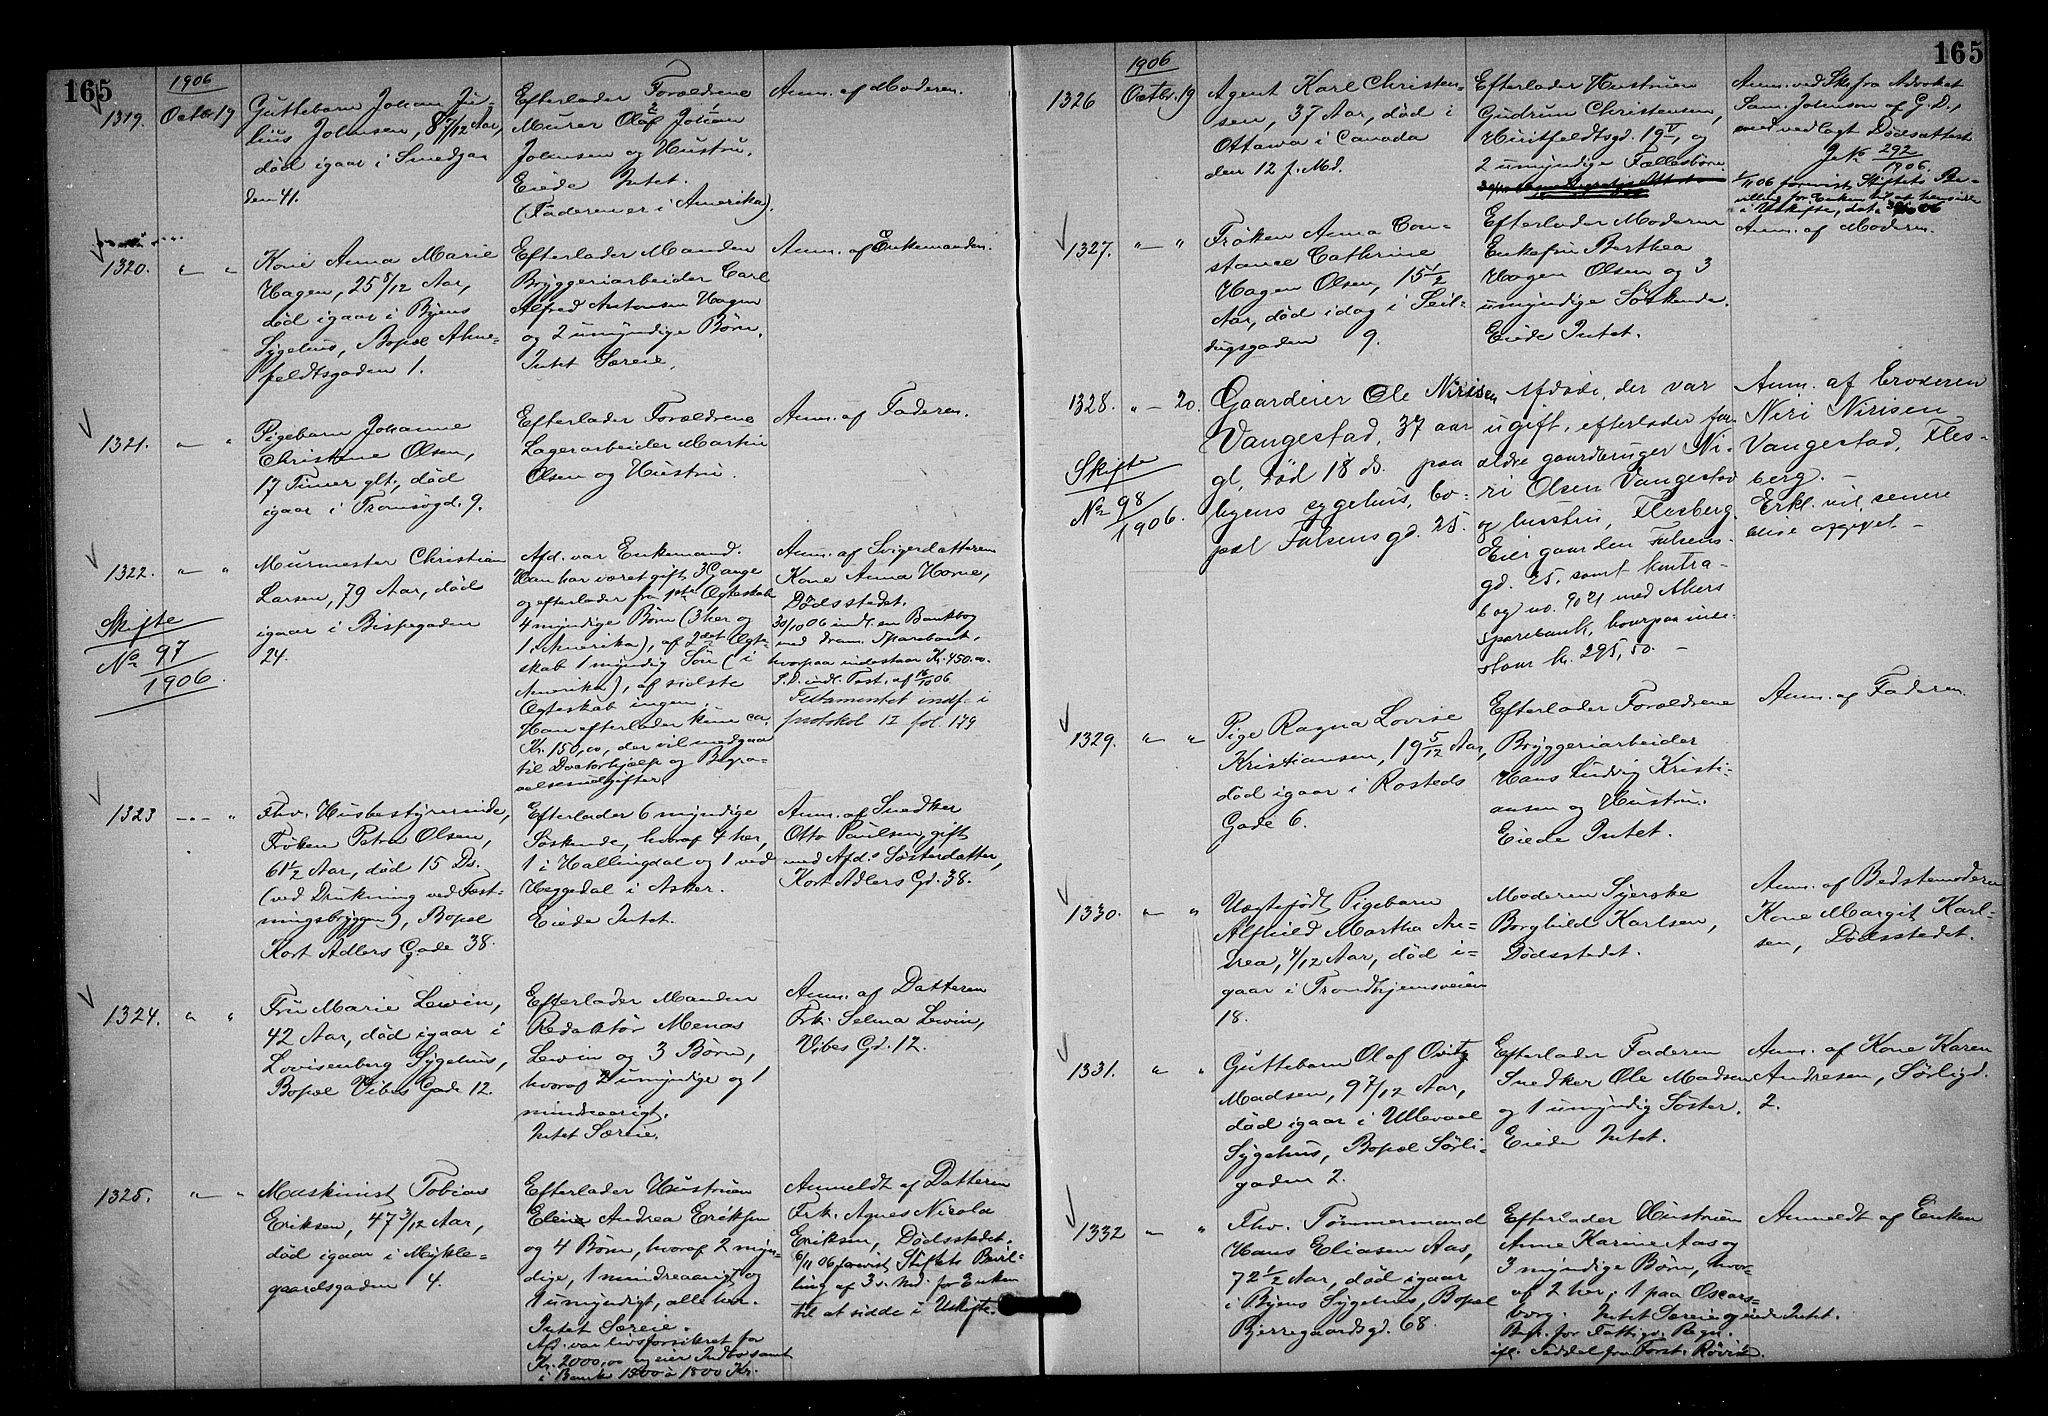 165
1906
1319.
Octbr 19
Guttebarn Johan Ju-
lius Johnsen, 8 7/12 Aar,
død igaar i Smedga
den 41.
Efterlader Forældrene
Murer Olaf Johan
Johnsen og Hustru.
Eiede Intet.
(Faderen er i Amerika).
Anm. af Moderen.
1320. " — "
Kone Anna Marie
Hagen, 25 8/12 Aar,
død igaar i Byens
Sygehus, Bopæl Ahne-
feldtsgaden 1.
Efterlader Manden
Bryggeriarbeider Carl
Alfred Antonsen Hagen
og 2 umyndige Børn.
Intet Særeie.
Anm. af Enkemanden.
1321. " — "
Pigebarn Johanne
Christine Olsen,
17 Timer glt., død
igaar i Tromsøgd. 9.
Efterlader Forældrene
Lagerarbeider Martin
Olsen og Hustru.
Anm. af Faderen.
1322. " — "
Skifte
No 97
1906.
Murmester Christian
Larsen, 79 Aar, død
igaar i Bispegaden
24.
Afd. var Enkemand.
Han har været gift 3 Gange
og efterlader fra 1ste Ægteskab
4 myndige Børn (3 her og
1 i Amerika), af 2det Ægte-
skab 1 myndig Søn (i
Amerika), af sidste
Ægteskab ingen.
Han efterlader kun ca.
Kr. 150,00, der vil medgaa
til Doctorhjælp og Begra-
velsesudgifter.
Anm. af Svigerdatteren
Kone Anna Horne,
Dødsstedet.
30/10 06 indl. en Bankbog
med Dram. Sparebank,
hvorpaa indestaar Kr. 450.00.
S. D. indl. Test. af 16/10 06
Testamentet indf. i
protokol 12 fol 179
1323 — " — "
Fhv. Husbestyrerinde,
Frøken Petra Olsen,
61 1/2 Aar, død 15 Ds.
(ved Drukning ved Fæst-
ningsbryggen), Bopæl
Kort Adlers Gade 38.
Efterlader 6 myndige
Søskende, hvoraf 4 her,
1 i Hallingdal og 1 ved
Heggedal i Asker.
Eiede Intet.
Anm. af Snedker
Otto Paulsen, gift
med Afd.s Søsterdatter,
Kort Adlers Gd. 38.
1324. " "
Fru Marie Lewin,
42 Aar, død igaar i
Lovisenberg Sygehus,
Bopæl Vibes Gade 12.
Efterlader Manden
Redaktør Menas
Lewin og 3 Børn,
hvoraf 2 umyndige og 1
mindreaarigt.
Intet Særeie.
Anm. af Datteren
Frk. Selma Lewin,
Vibes Gd. 12.
1325. " — "
Maskinist Tobias
Eriksen, 47 3/12 Aar,
død igaar i Mykle-
gaardsgaden 4.
Efterlader Hustruen
Eline Andrea Eriksen
og 4 Børn, hvoraf 2 myn-
dige, 1 mindreaarigt og
1 umyndigt, alle her.
Intet Særeie.
Afd. var livsforsikret for
Kr. 2000,00 og eier Indbo samt
i Bank 1500 à 1800 Kr.
Anmeldt af Datteren
Frk. Agnes Nicola
Eriksen, Dødsstedet.
6/11 06 forevist Stiftets Bevil-
ling af 3. d. Md. for Enken
til at sidde i Uskifte.
165
1906
1326 Octbr. 19
Agent Karl Christen-
sen, 37 Aar, død i
Ottawa i Canada
den 12 f. Md.
Efterlader Hustruen
Gudrun Christensen,
Huitfeldtsgd. 19 V, og
2 umyndige Fællesbørn
Anm. ved Skr. fra Advokat
Sam. Johnson af G. D.,
med vedlagt Dødsattest
J. No 292
1906.
1/11 06 forevist Stiftets Be-
villing for Enken til at hensidde
i Uskifte, dat. 06
1327. " — "
Frøken Anna Con-
stance Cathrine
Hagen Olsen, 15 1/2
Aar, død idag i Seil-
dugsgaden 9.
Efterlader Moderen
Enkefru Berthea
Hagen Olsen og 3
umyndige Søskende.
Eiede Intet.
Anm. af Moderen.
1328. " — 20.
Skifte
No 98
1906.
Gaardeier Ole Nirisen
Vangestad, 37 aar
gl, død 18 ds. paa
byens sygehus, bo-
pæl Falsens gd. 25.
Afdøde, der var
ugift, efterlader for-
ældre gaardbruger Ni-
ri Olsen Vangestad
og hustru, Flesberg.
Eier gaarden Falsens
gd. 25. samt kontra-
bog no. 9021 med Akers
sparebank, hvorpaa inde-
staar kr. 295,50. —
Anm. af broderen
Niri Nirisen
Vangestad, Fles-
berg. —
Erkl. vil senere
blive opgivet —
1329. " — "
Pige Ragna Lovise
Kristiansen, 19 5/12 Aar,
død igaar i Rosteds
Gade 6.
Efterlader Forældrene
Bryggeriarbeider
Hans Ludvig Kristi-
ansen og Hustru.
Eiede Intet.
Anm. af Faderen.
1330. " — "
Uægtefødt Pigebarn
Alfhild Martha An-
drea, 4/12 Aar, død i-
gaar i Trondhjemsveien
18.
Moderen Syerske
Borghild Karlsen,
Dødsstedet.
Anm. af Bedstemoderen
Kone Margit Karl-
sen, Dødsstedet.
1331. " "
Guttebarn Olaf Ovitz
Madsen, 9 7/12 Aar,
død igaar i Ullevaal
Sygehus, Bopæl Sørli-
gaden 2.
Efterlader Faderen
Snedker Ole Madsen
og 1 umyndig Søster.
Eiede Intet.
Anm. af Kone Karen
Andresen, Sørligd.
2.
1332 " — "
Fhv. Tømmermand
Hans Eliasen Aas,
72 1/2 Aar, død igaar
i Byens Sygehus, Bopæl
Bjerregaardsgd. 68.
Efterlader Hustruen
Anne Karine Aas og
3 myndige Børn, hvor-
af 2 her, 1 paa Oscars-
borg. Intet Særeie og eiede Intet.
Begr. for Fattigv. Regn.
ifl. Seddel fra Forst.
Anmeldt af Enken